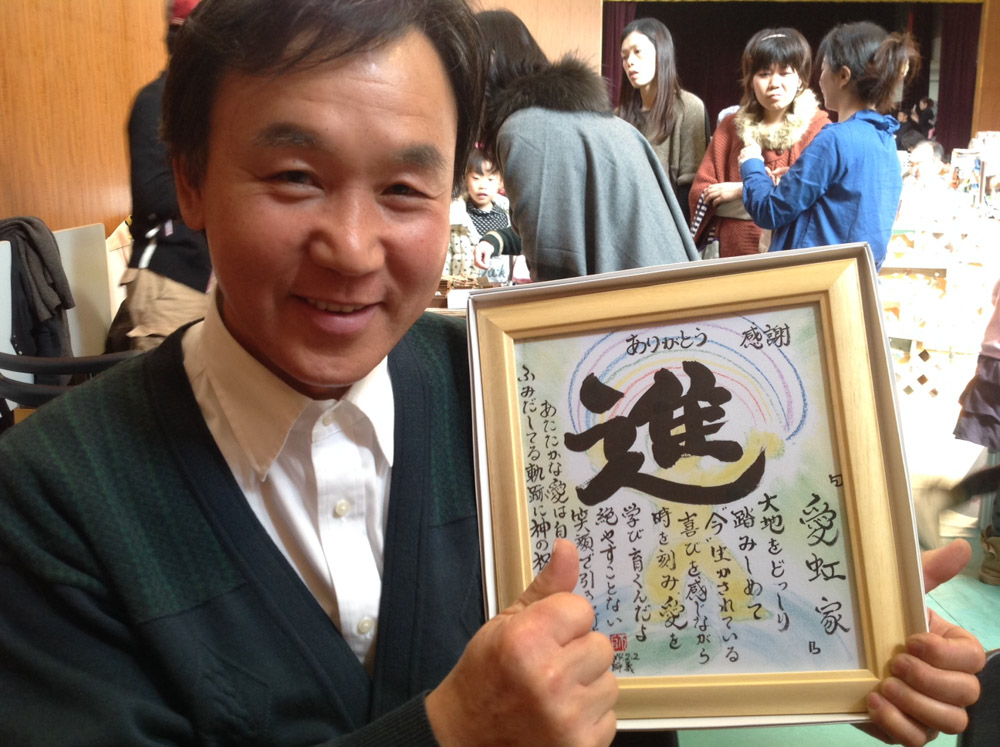 ありがとう 感謝
進
「愛虹家」
大地をどっしり
踏みしめて
“今”生かされている
喜びを感じながら
時を刻み愛を
学び育くんだよ
絶やすことない
笑顔で引き
あたたかな愛は自
ふみだしてる軌跡に神の